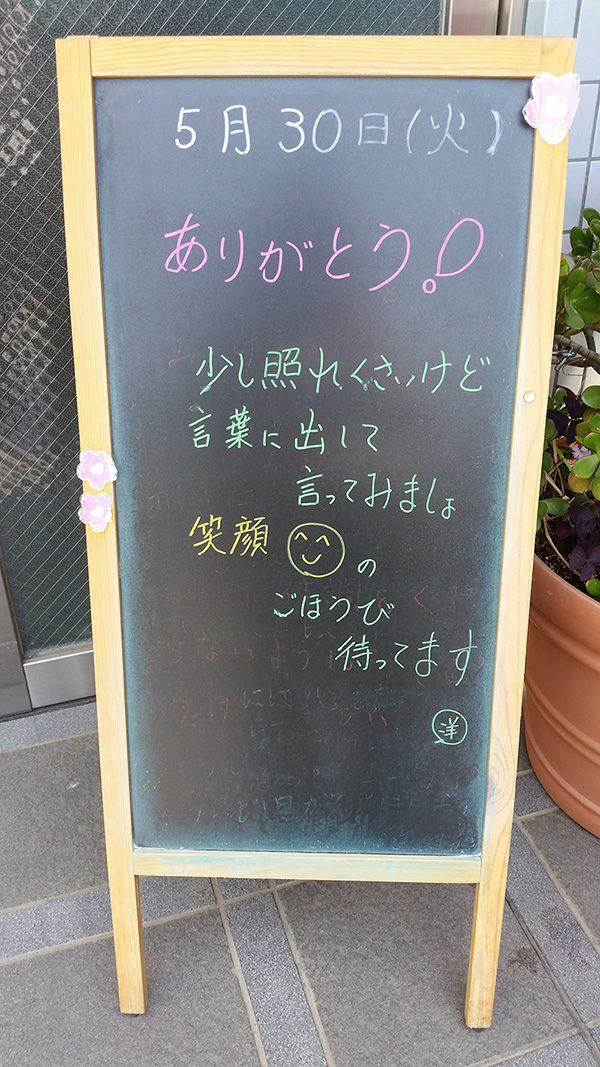 5月30日(火)
ありがとう!
少し照れくさいけど
言葉に出して
言ってみましょ
笑顔の
ごほうび
待ってます
洋